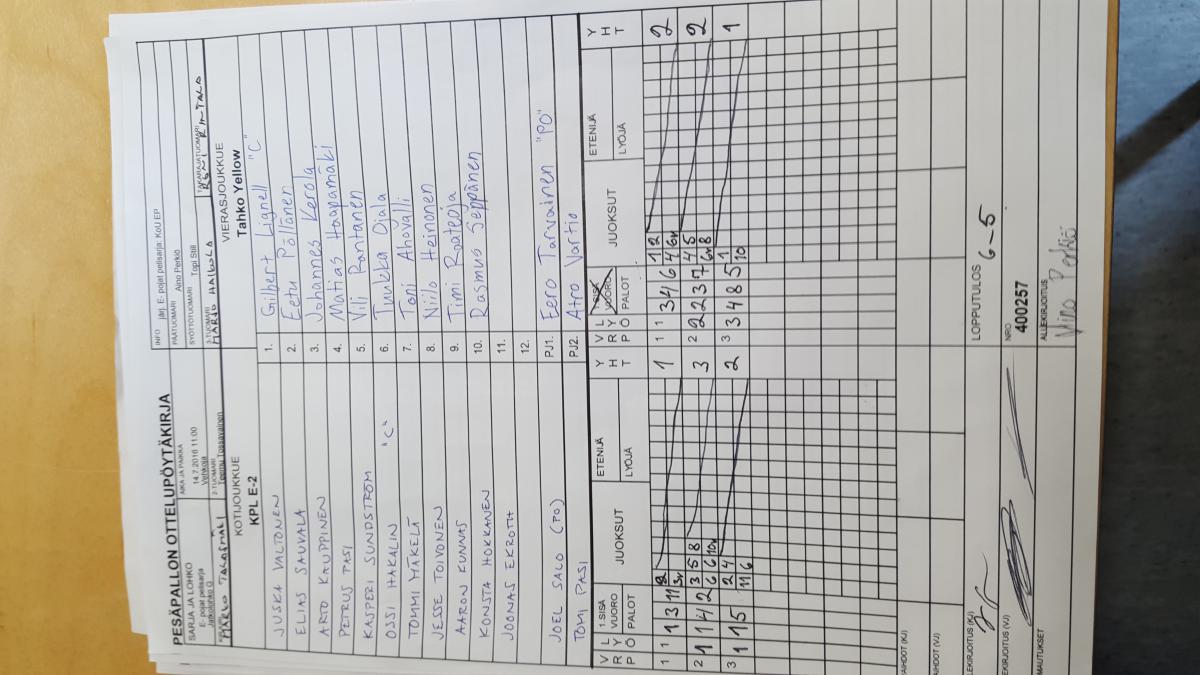 PESÄPALLON OTTELUPÖYTÄKIRJA
SARJA JA LOHKO
E- pojat pelisarja
Jatkolohko G
AIKA JA PAIKKA
14.7.2016 11:00
Vehkoja
INFO järj. E- pojat pelisarja: KoU EP
PÄÄTUOMARI Aino Perkiö
SYÖTTÖTUOMARI Topi Still
2-TUOMARI
Teemu Tossavainen
3-TUOMARI
TAKARAJATUOMARI
KOTIJOUKKUE
KPL E-2
VIERASJOUKKUE
Tahko Yellow
JUSKA VALTONEN 1. Gilbert Lignell "C"
ELIAS SAUVALA 2. Eetu Pöllänen
ARTO KAUPPINEN 3. Johannes Kerola
PETRUS PASI 4. Matias Haapamäki
KASPERI SUNDSTRÖM 5. Vili Rantanen
OSSI HAKALIN "C" 6. Tuukka Ojala
TOMMI MÄKELÄ 7. Toni Ahovalli
JESSE TOIVONEN 8. Niilo Heinonen
AARON KUNNAS 9. Timi Raateoja
KONSTA HOKKANEN 10. Rasmus Seppänen
JOONAS EKROTH 11.
12.
JOEL SALO (PO) PJ1. Eero Tarvainen "PO"
TOMI PASI PJ2. Atro Vartio
V R P L Y Ö 1.SISÄ VUORO PALOT JUOKSUT ETENIJÄ LYÖJÄ Y H T V R P L Y Ö VUORO PALOT JUOKSUT ETENIJÄ LYÖJÄ Y H T
1 1 1 3 11 1 1 1 3 4 6 1 2 2
3v 4 6v
2 1 1 4 2 3 5 8 3 2 2 2 3 7 4 5 2
6 6 10v 6v 8
3 1 1 5 2 4 2 3 3 4 8 5 1 1
11 6 10
AIHDOT (KJ)
AIHDOT (VJ)
EKIRJOITUS (KJ)
LOPPUTULOS 6-5
EKIRJOITUS (VJ)
NRO
400257
MAUTUKSET
ALLEKIRJOITUS